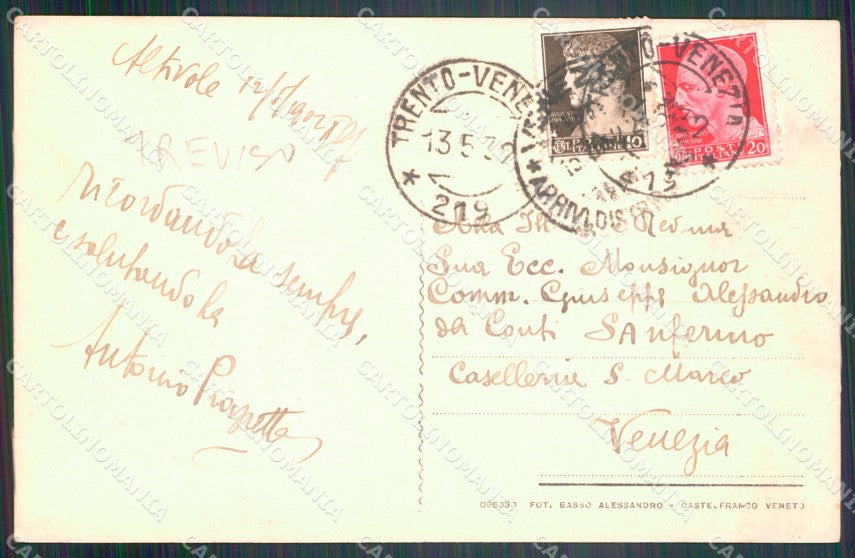 Altivole
TREVISO
ricordandola sempre,
e salutandola
Antonio
TRENTO-VENE
13.5.32
* 219
TO-VENEZIA
19 *
ARRIVI DIS
POSTE
ITALIANE 10
POSTE
ITALIANE 20
Alla
Sua Ecc. Monsignor
Comm. Giuseppe Alessandro
da Conti Sanfermo
S. Marco
Venezia
FOT. BASSO ALESSANDRO - CASTELFRANCO VENETO
CARTOLINOMANIA